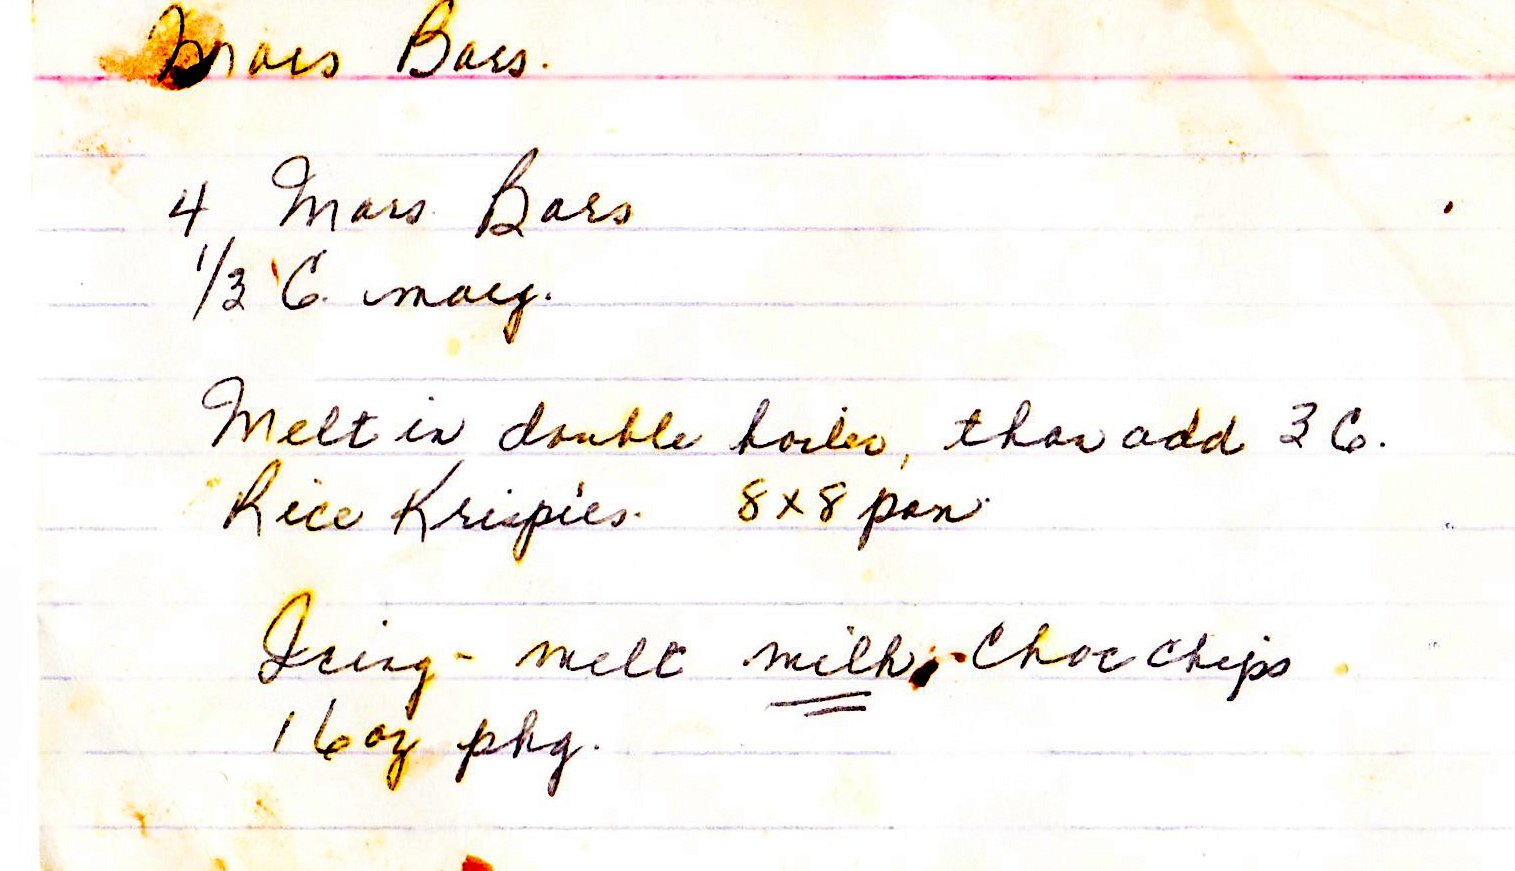 Mars Bars.
4 Mars Bars
1/3 C. marg.
Melt in double boiler, then add 3 C.
Rice Krispies. 8x8 pan.
Icing - melt milk Choc chips
1 6 oz pkg.